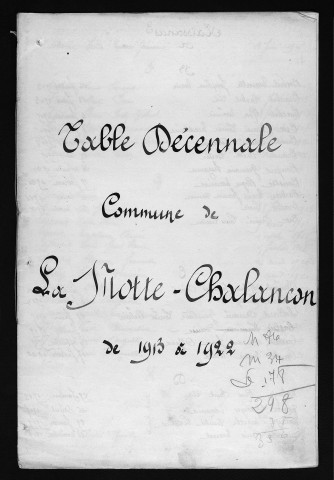 Table Décennale
Commune de
La Motte-Chalancon
de 1913 à 1922
M 34
178
298